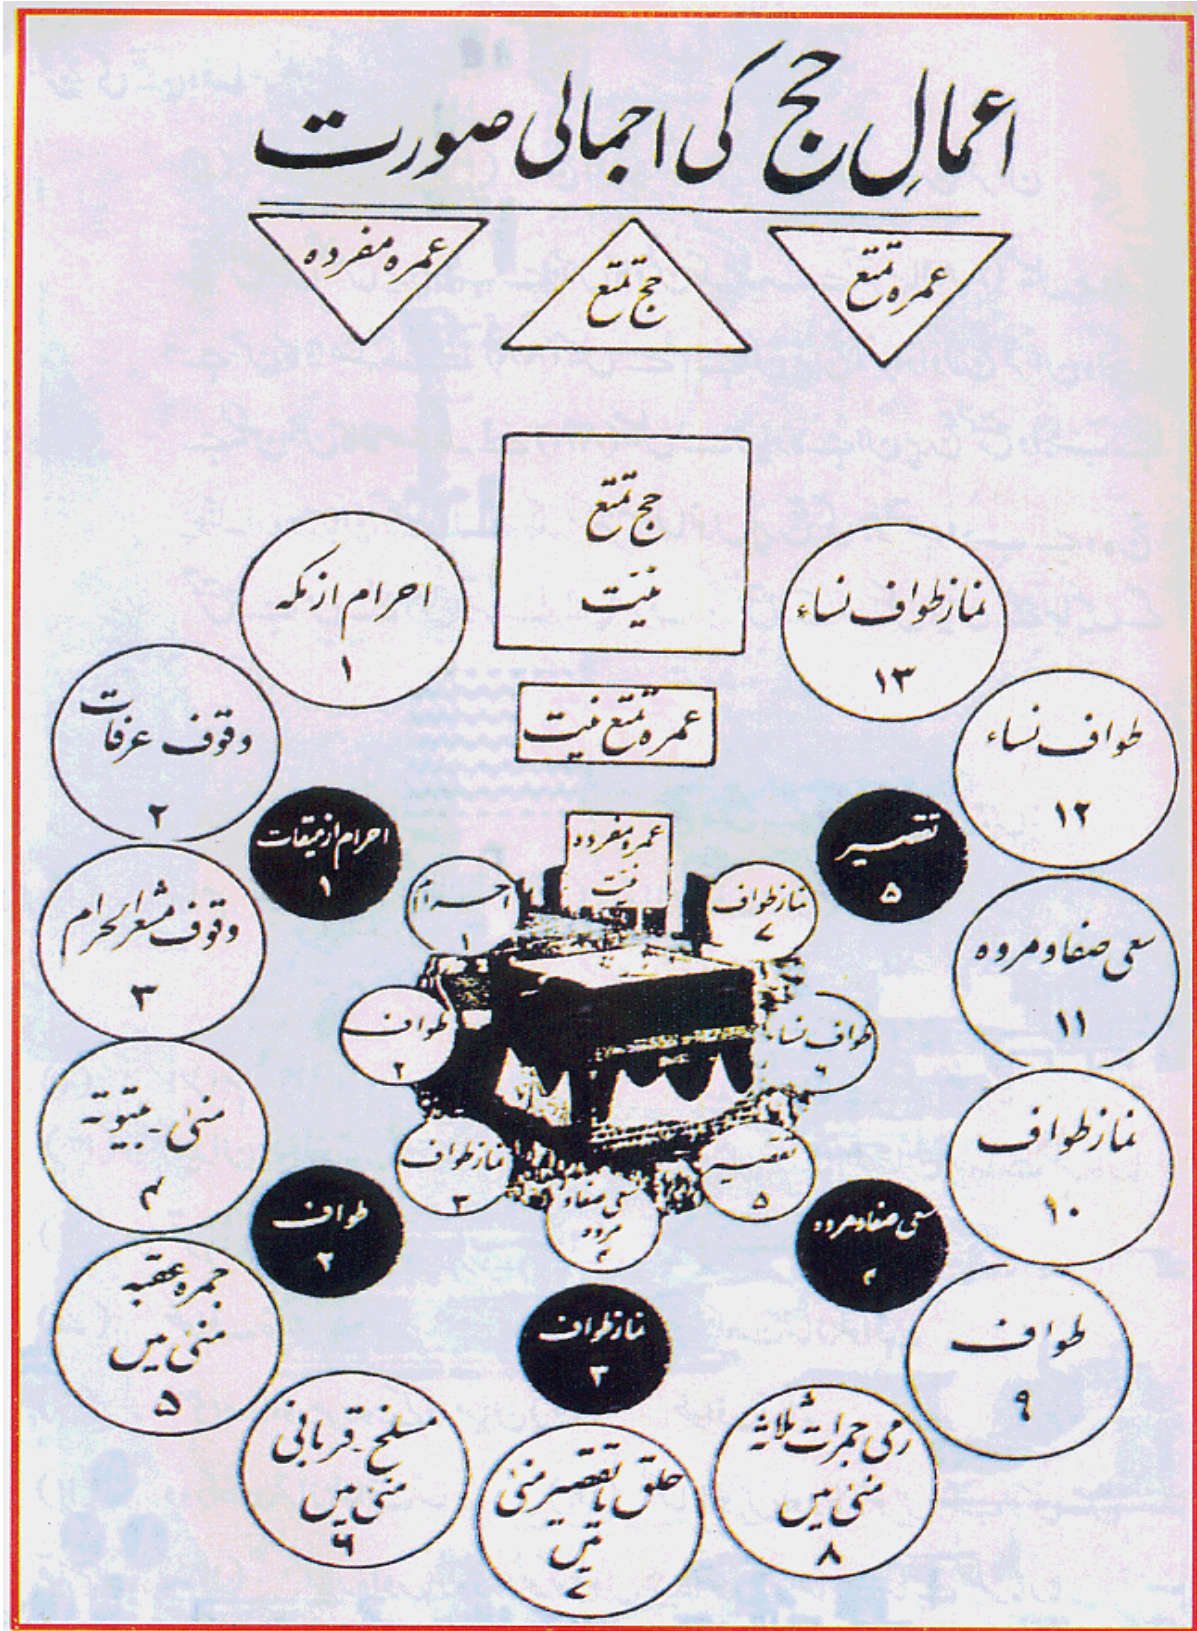 اعمالِ حج کی اجمالی صورت
عمرہ تمتع
حج تمتع
عمرہ مفردہ
حج تمتع
نیت
احرام از مکہ
۱
وقوف عرفات
۲
وقوف مشعر الحرام
۳
منیٰ۔ بیتوتہ
۴
جمرہ عقبہ
منیٰ میں
۵
مسلخ۔ قربانی
منیٰ میں
۶
حلق یا تقصیر منیٰ
میں
۷
رمی جمرات ثلاثہ
منیٰ میں
۸
طواف
۹
نماز طواف
۱۰
سعی صفا و مروہ
۱۱
طواف نساء
۱۲
نماز طواف نساء
۱۳
عمرہ تمتع نیت
احرام از میقات
۱
طواف
۲
نماز طواف
۳
سعی صفا و مروہ
۴
تقصیر
۵
عمرہ مفردہ
نیت
احرام
۱
طواف
۲
نماز طواف
۳
سعی صفا و
مروہ
۴
تقصیر
۵
طواف نساء
۶
نماز طواف
۷